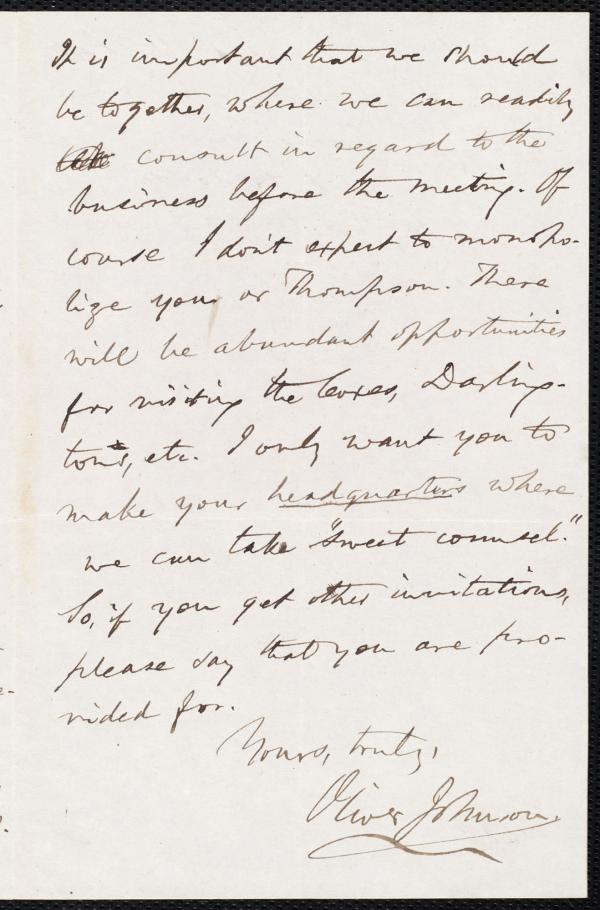 It is important that we should
be together, where we can readily
consult in regard to the
business before the meeting. Of
course I don't expect to monopo-
lize you or Thompson. There
will be abundant opportunities
for visiting the Coxes, Darling-
tons, etc. I only want you to
make your headquarters where
we can take "sweet counsel."
So, if you get other invitations,
please say that you are pro-
vided for.
Yours, truly,
Oliver Johnson.